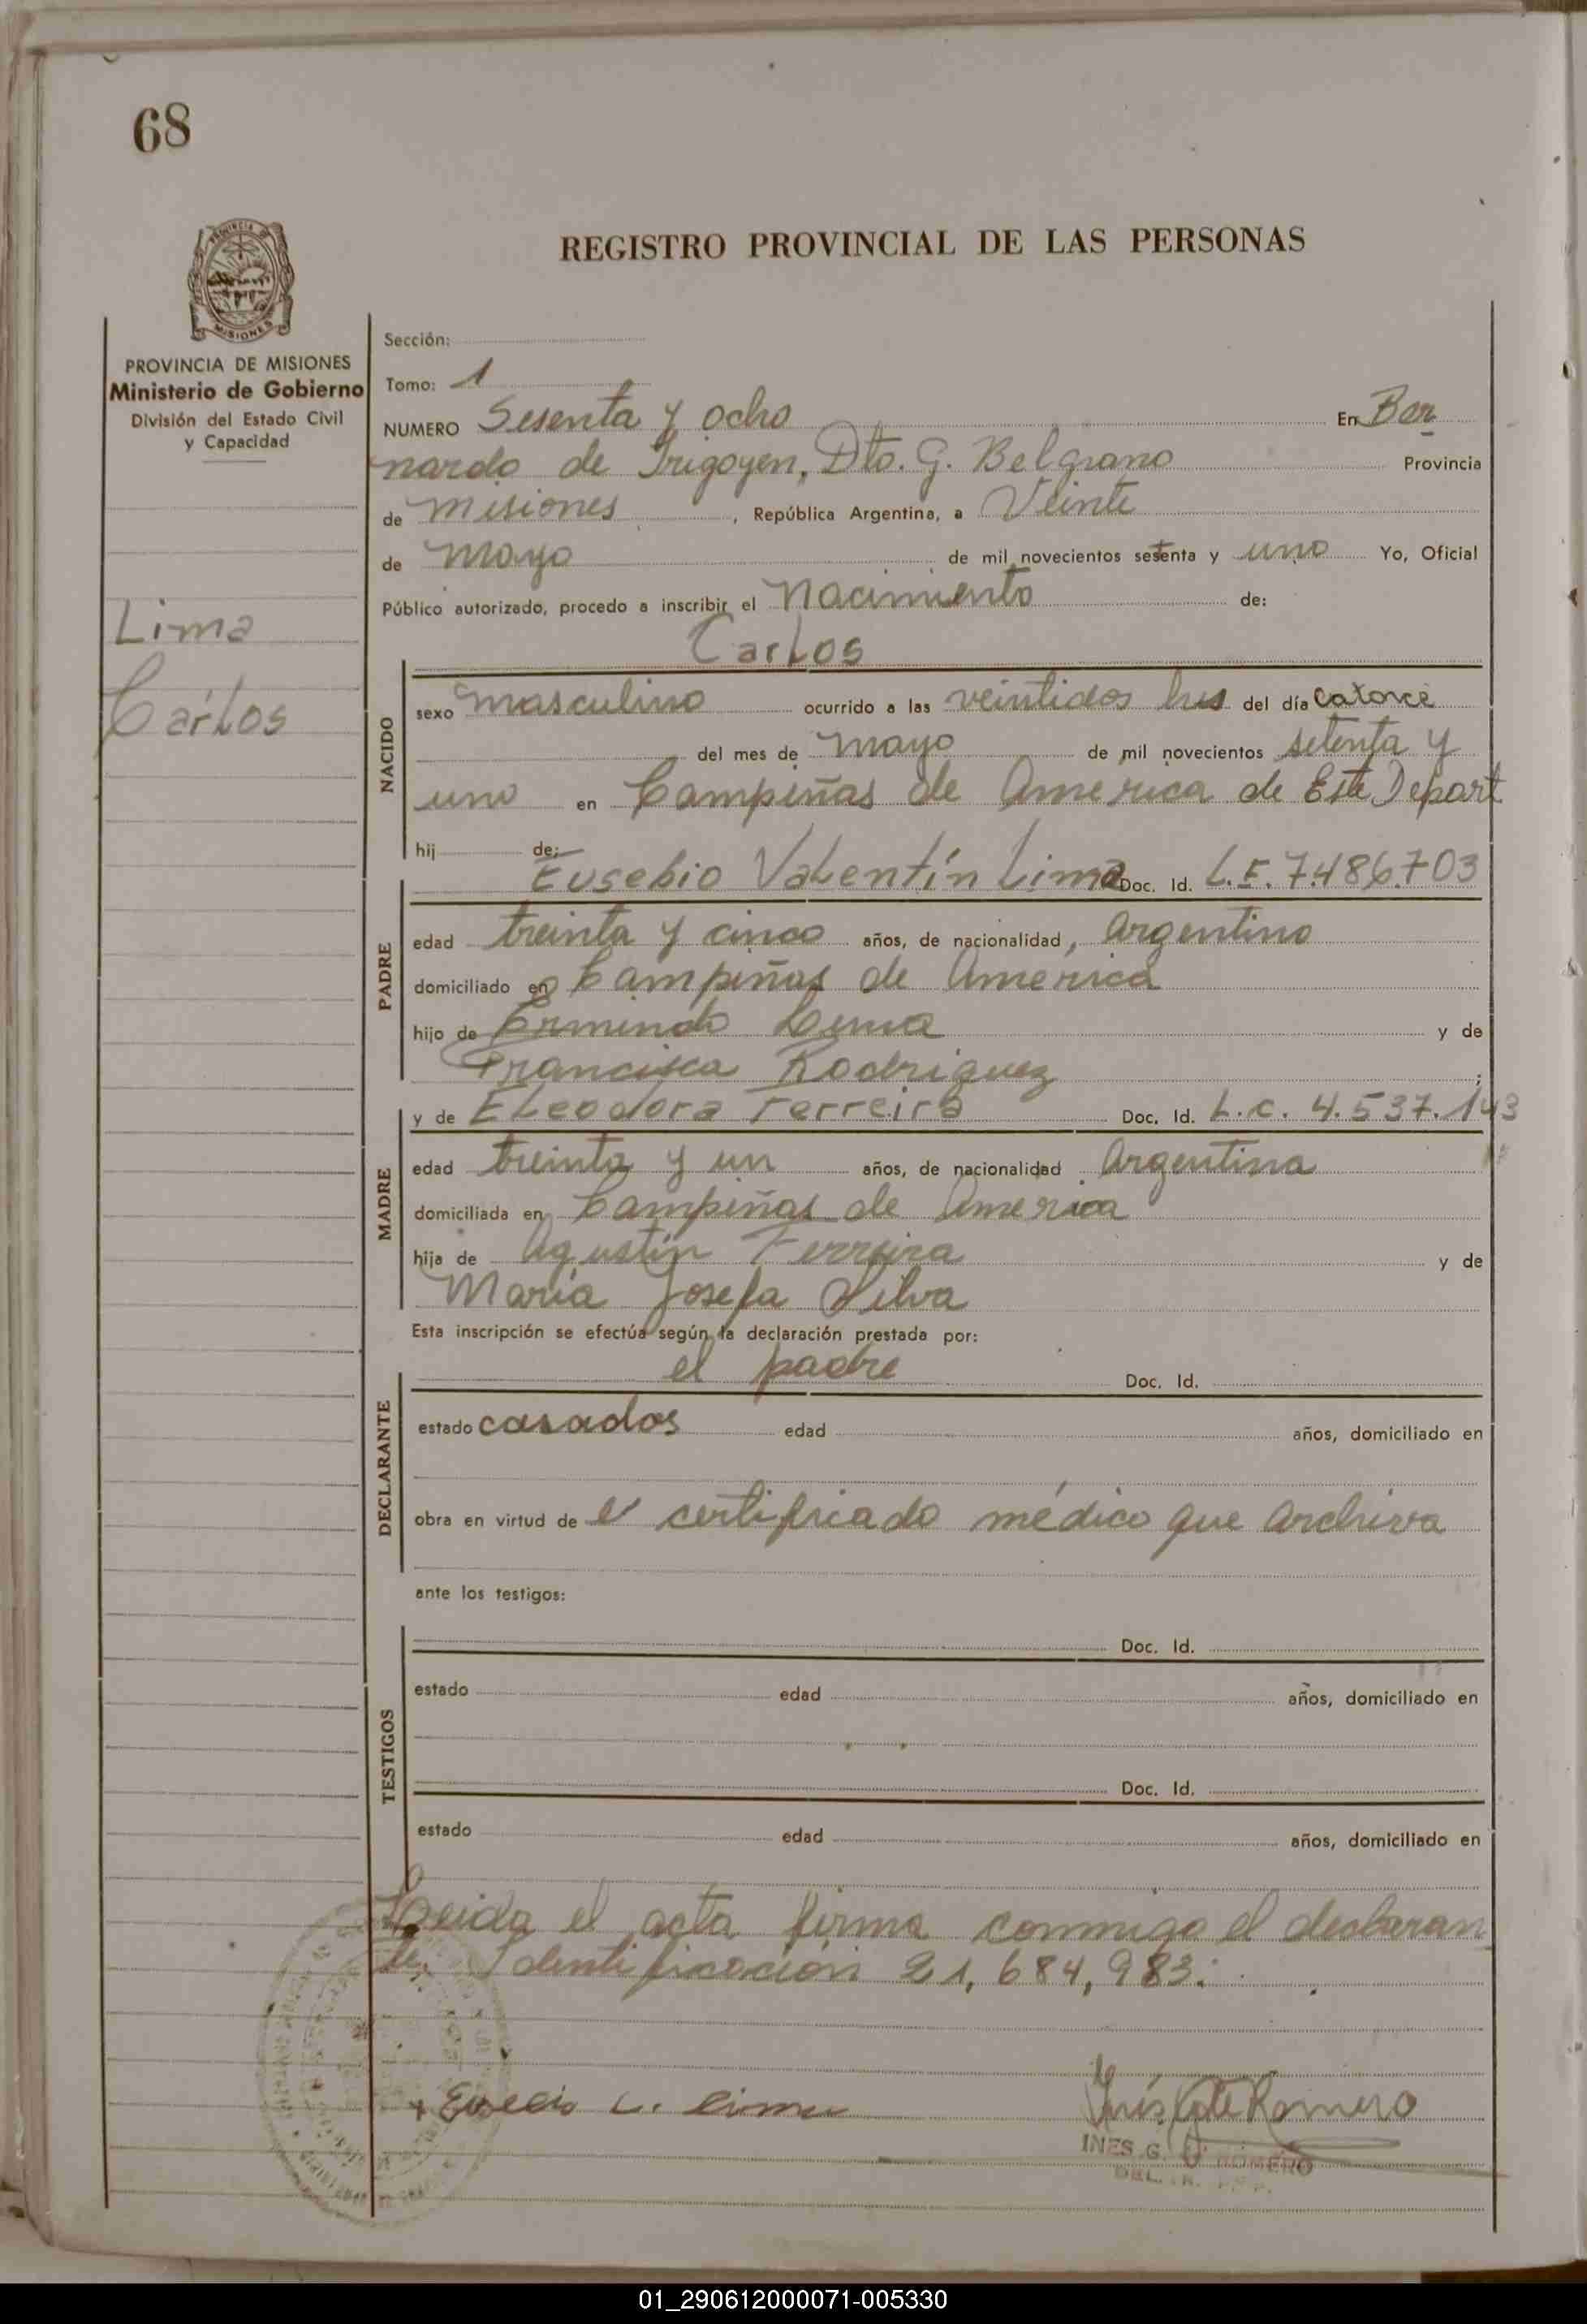 68
REGISTRO PROVINCIAL DE LAS PERSONAS
MISIONES
PROVINCIA DE MISIONES
Ministerio de Gobierno
División del Estado Civil
y Capacidad
Lima
Carlos
Sección:
Tomo: 1
NUMERO Sesenta y ocho En Ber
nardo de Irigoyen, Dto. G. Belgrano Provincia
de Misiones, República Argentina, a Veinte
de Mayo de mil novecientos setenta y uno Yo, Oficial
Público autorizado, procedo a inscribir el Nacimiento de:
Carlos
NACIDO
sexo masculino ocurrido a las veintidos hrs del día catorce
del mes de mayo de mil novecientos setenta y
uno en Campiñas de America de Este Depart
hij de:
Eusebio Valentín Lima Doc. Id. L.E. 7.486.703
PADRE
edad treinta y cinco años, de nacionalidad, Argentino
domiciliado en Campiñas de América
hijo de Ermindo Lima y de
Francisca Rodriguez;
y de Eleodora Ferreira Doc. Id. L.C. 4.537.143
MADRE
edad treinta y un años, de nacionalidad Argentina
domiciliada en Campiñas de America
hija de Agustín Ferreira y de
María Josefa Silva
Esta inscripción se efectúa según la declaración prestada por:
el padre Doc. Id.
DECLARANTE
estado casados edad años, domiciliado en
obra en virtud de el certificado médico que archiva
ante los testigos:
Doc. Id.
TESTIGOS
estado edad años, domiciliado en
Doc. Id.
estado edad años, domiciliado en
Leida el acta firma conmigo el declaran
te. Identificación 21,684,983.
Inés G de Romero
INES G. ROMERO
01_290612000071-005330